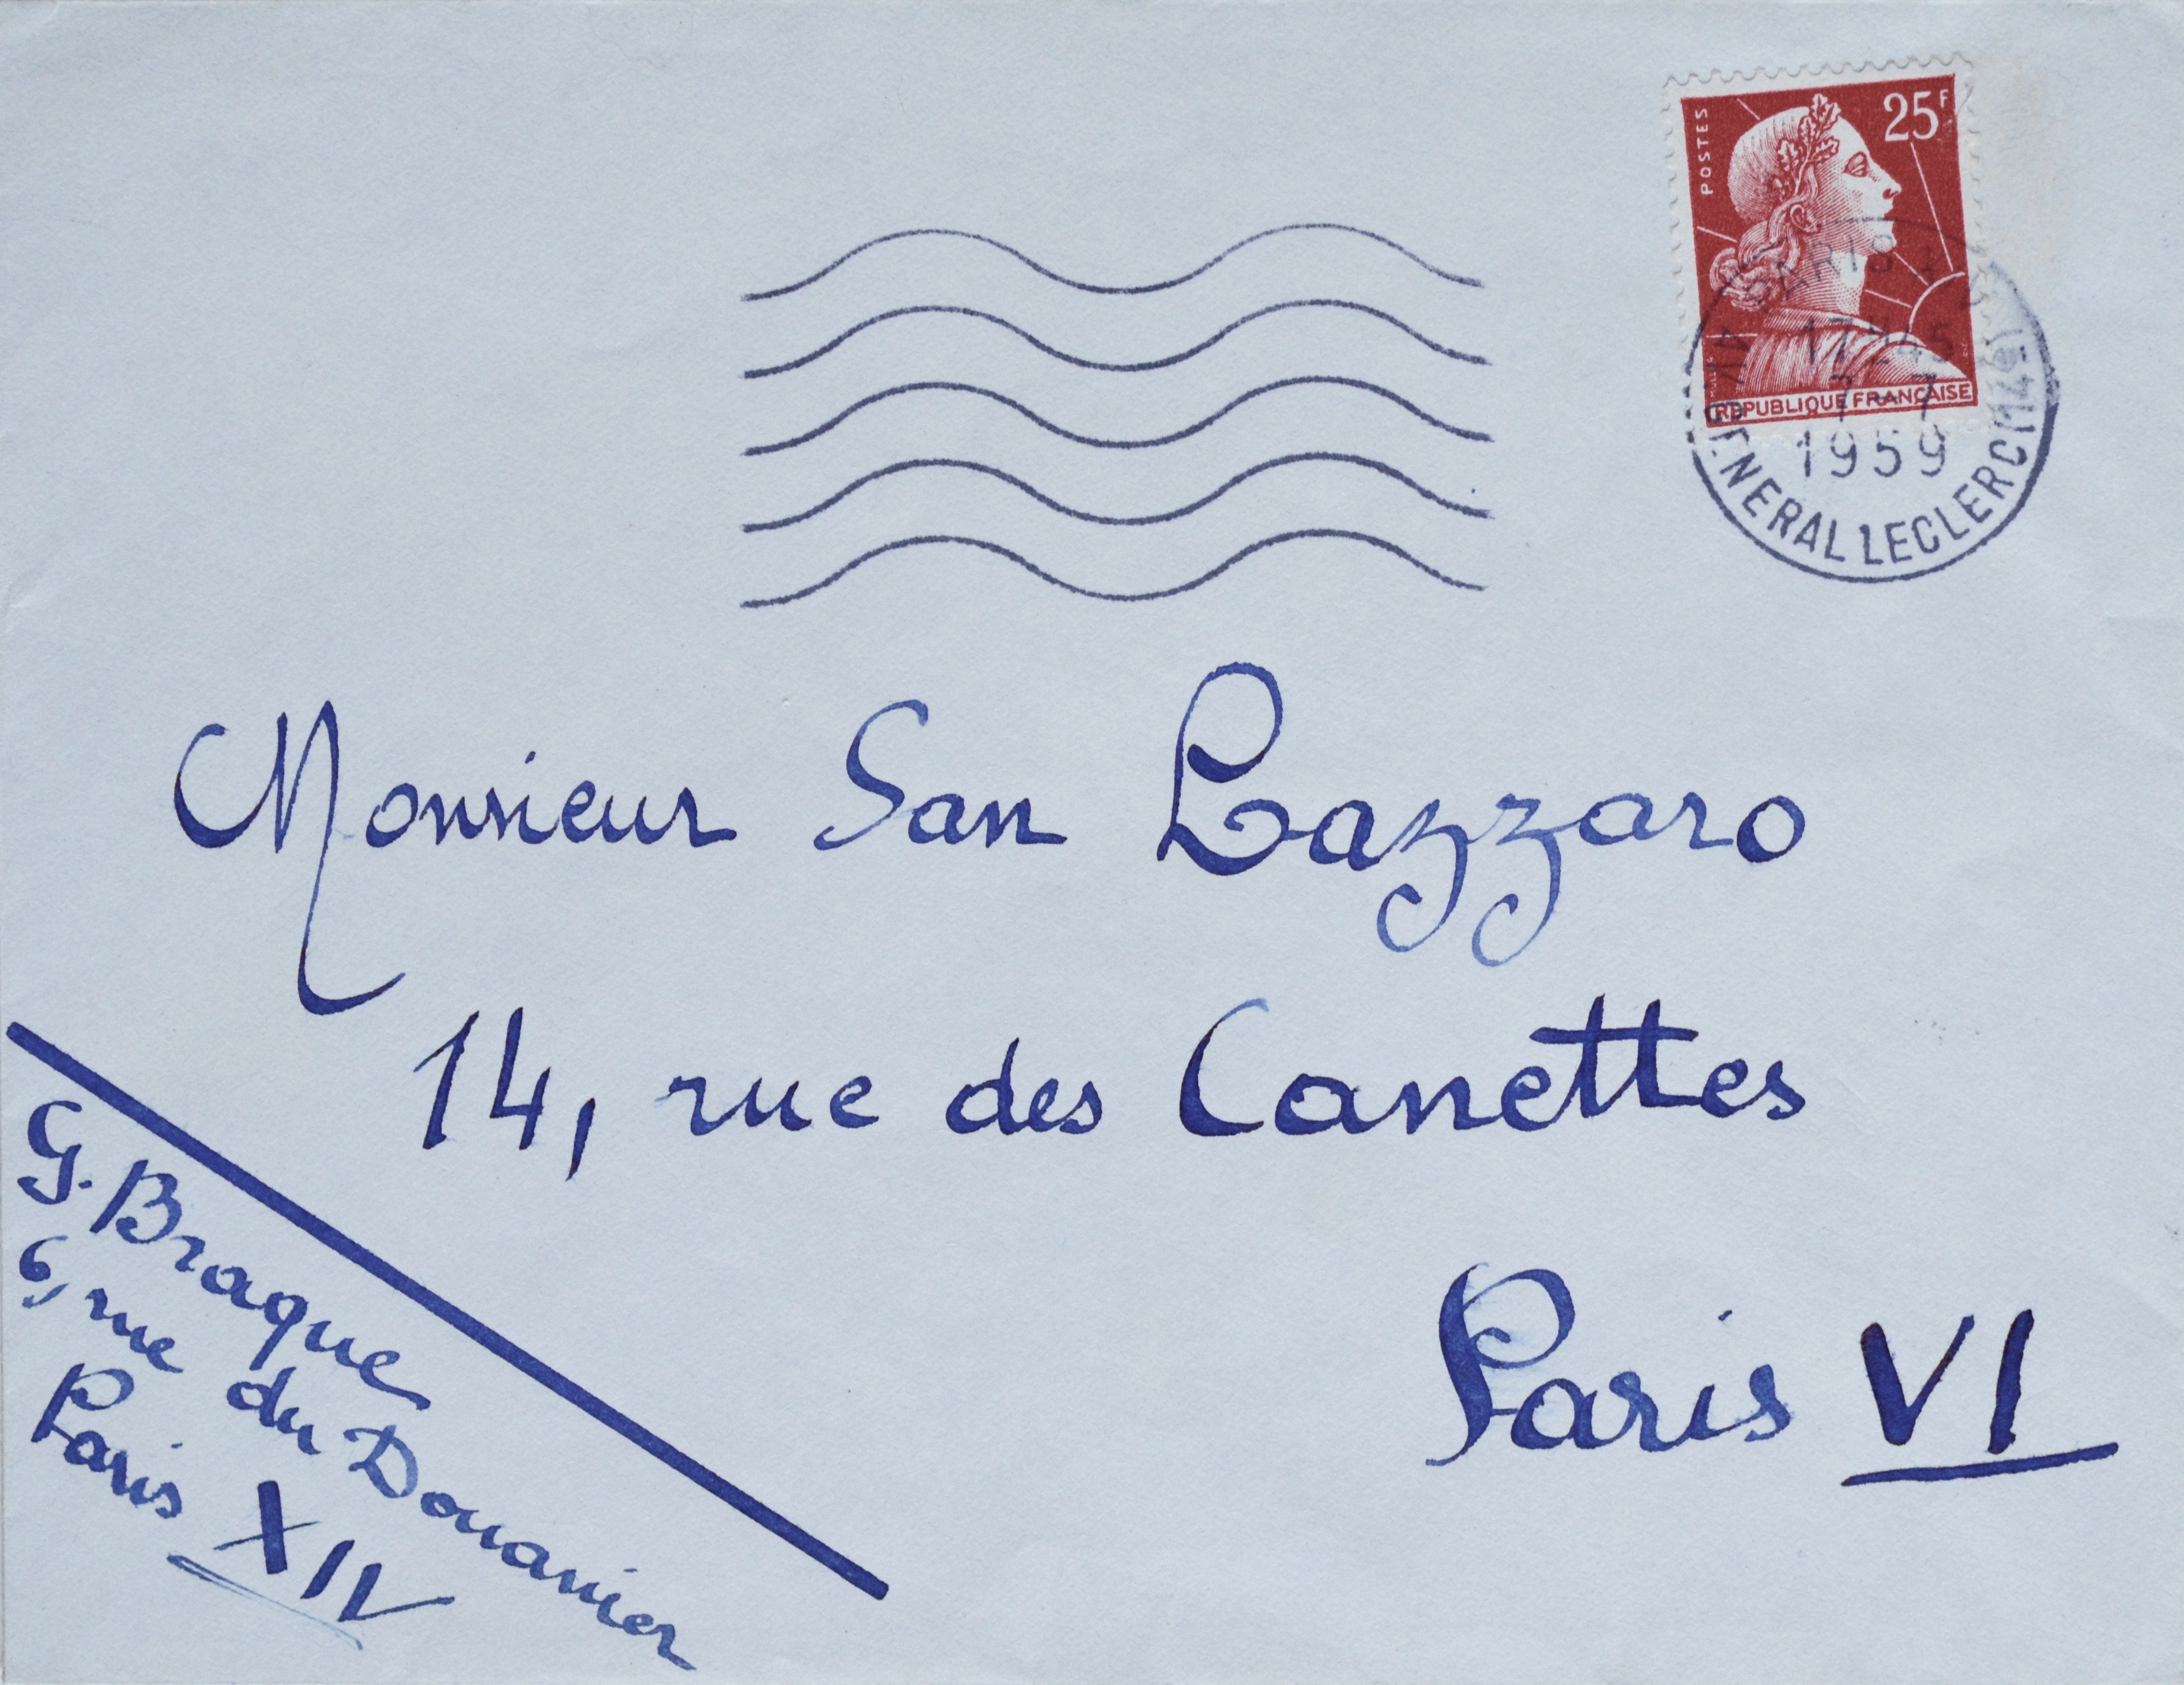 POSTES
25F
REPUBLIQUE FRANÇAISE
PARIS
17H45
7-7
1959
AV. GENERAL LECLERC (14E)
Monsieur San Lazzaro
14, rue des Canettes
Paris VI
G. Braque
6, rue du Douanier
Paris XIV